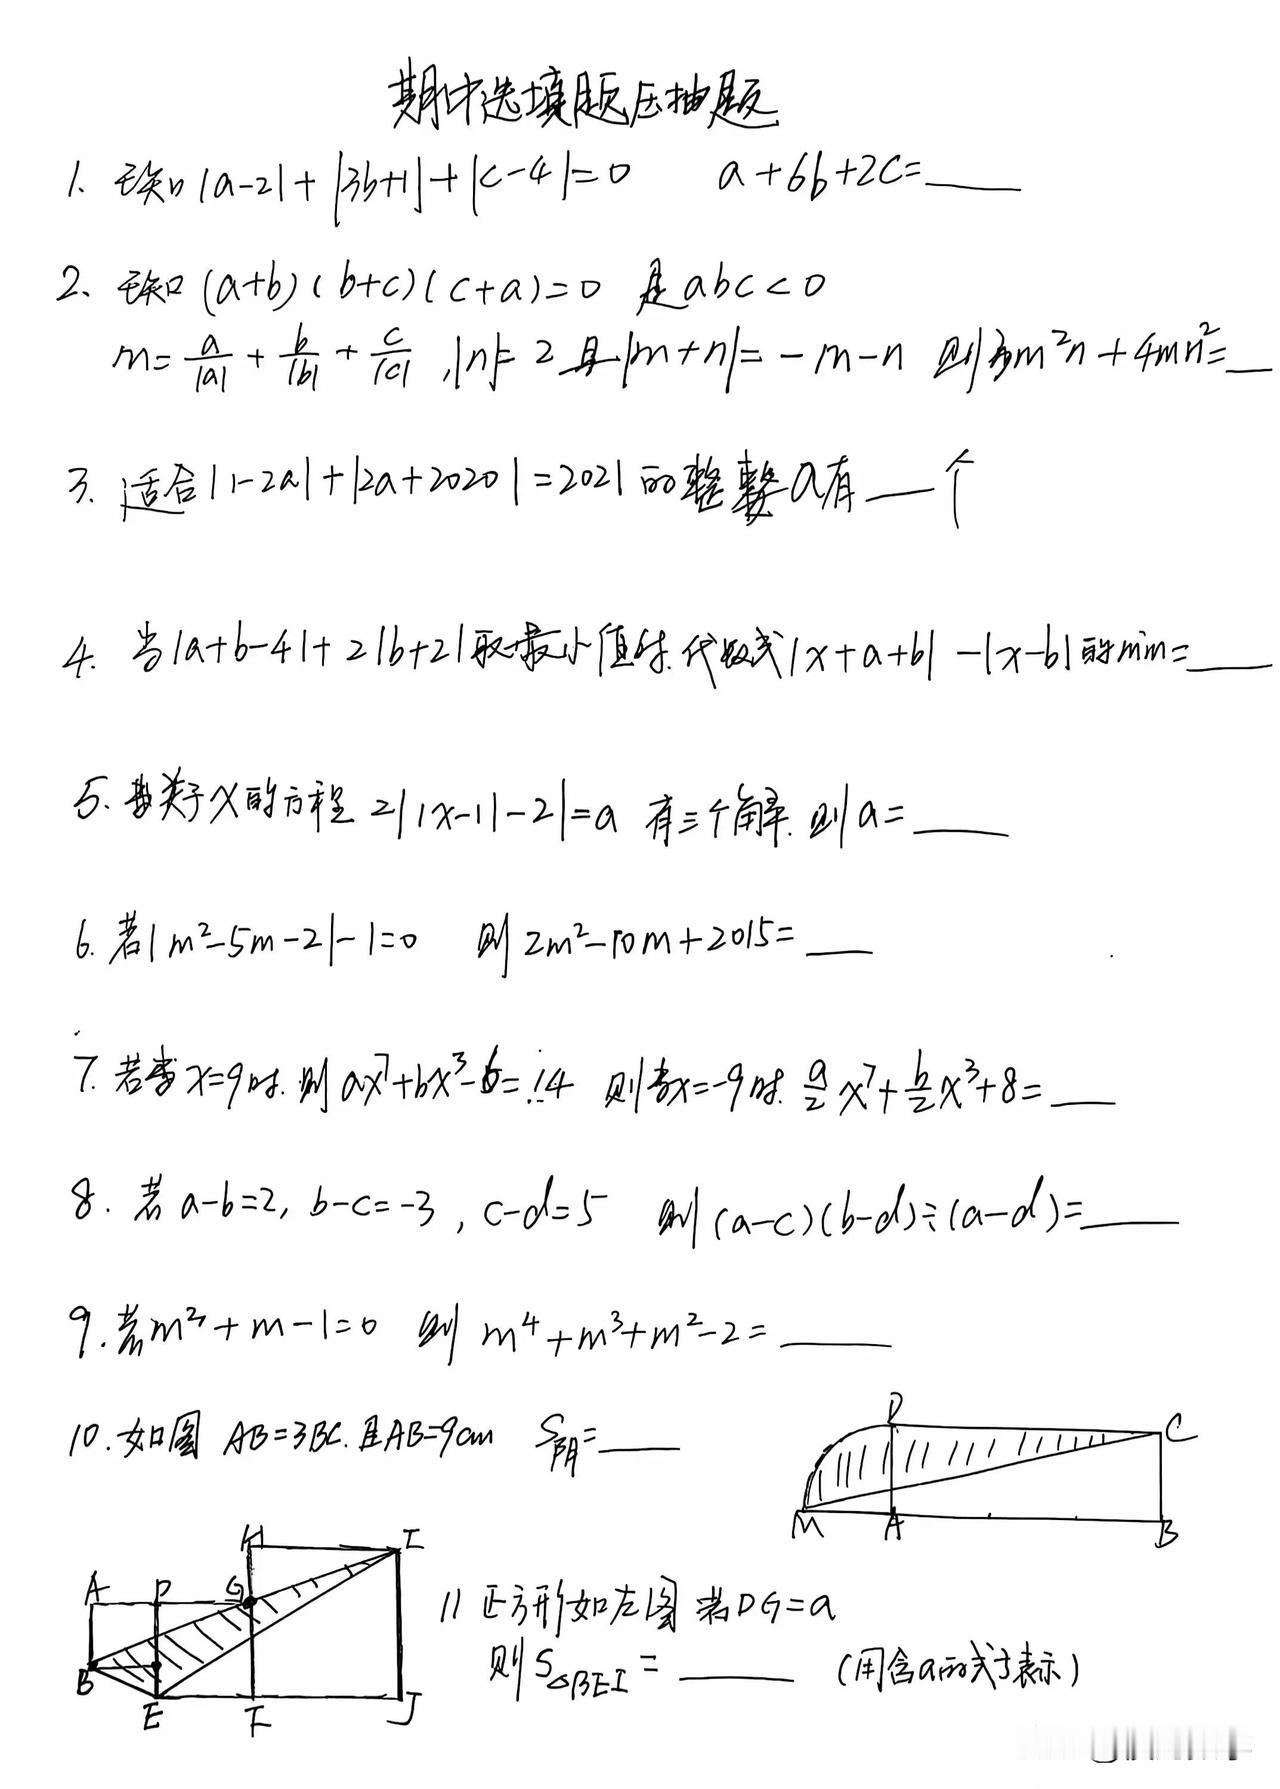 期中选填题压抽题
1. 已知|a-2|+|3b+1|+|c-4|=0 a+6b+2c=____
2、已知(a+b)(b+c)(c+a)=0 是abc<0
m=a/|a|+b/|b|+c/|c|,|n|=2且|m+n|=-m-n 则3m²n+4mn²=__
3. 适合|1-2a|+|2a+2020|=2021的整数a有___个
4. 当|a+b-4|+2|b+2|取最小值时.代数式|x+a+b|-|x-b|的min=____
5. 若关于x的方程2||x-1|-2|=a 有三个解.则a=____
6. 若|m²-5m-2|-1=0 则2m²-10m+2015=___
7. 若当x=9时.则ax⁷+bx³-6=14 则当x=-9时.a/2x⁷+b/2x³+8=___
8. 若a-b=2, b-c=-3, c-d=5 则(a-c)(b-d)÷(a-d)=____
9. 若m²+m-1=0 则m⁴+m³+m²-2=____
10. 如图 AB=3BC.且AB=9cm S阴=____
D
C
M
A
B
H
I
A
D
G
B
E
F
J
11 正方形如左图 若DG=a
则S△BEI=____ (用含a的式子表示)